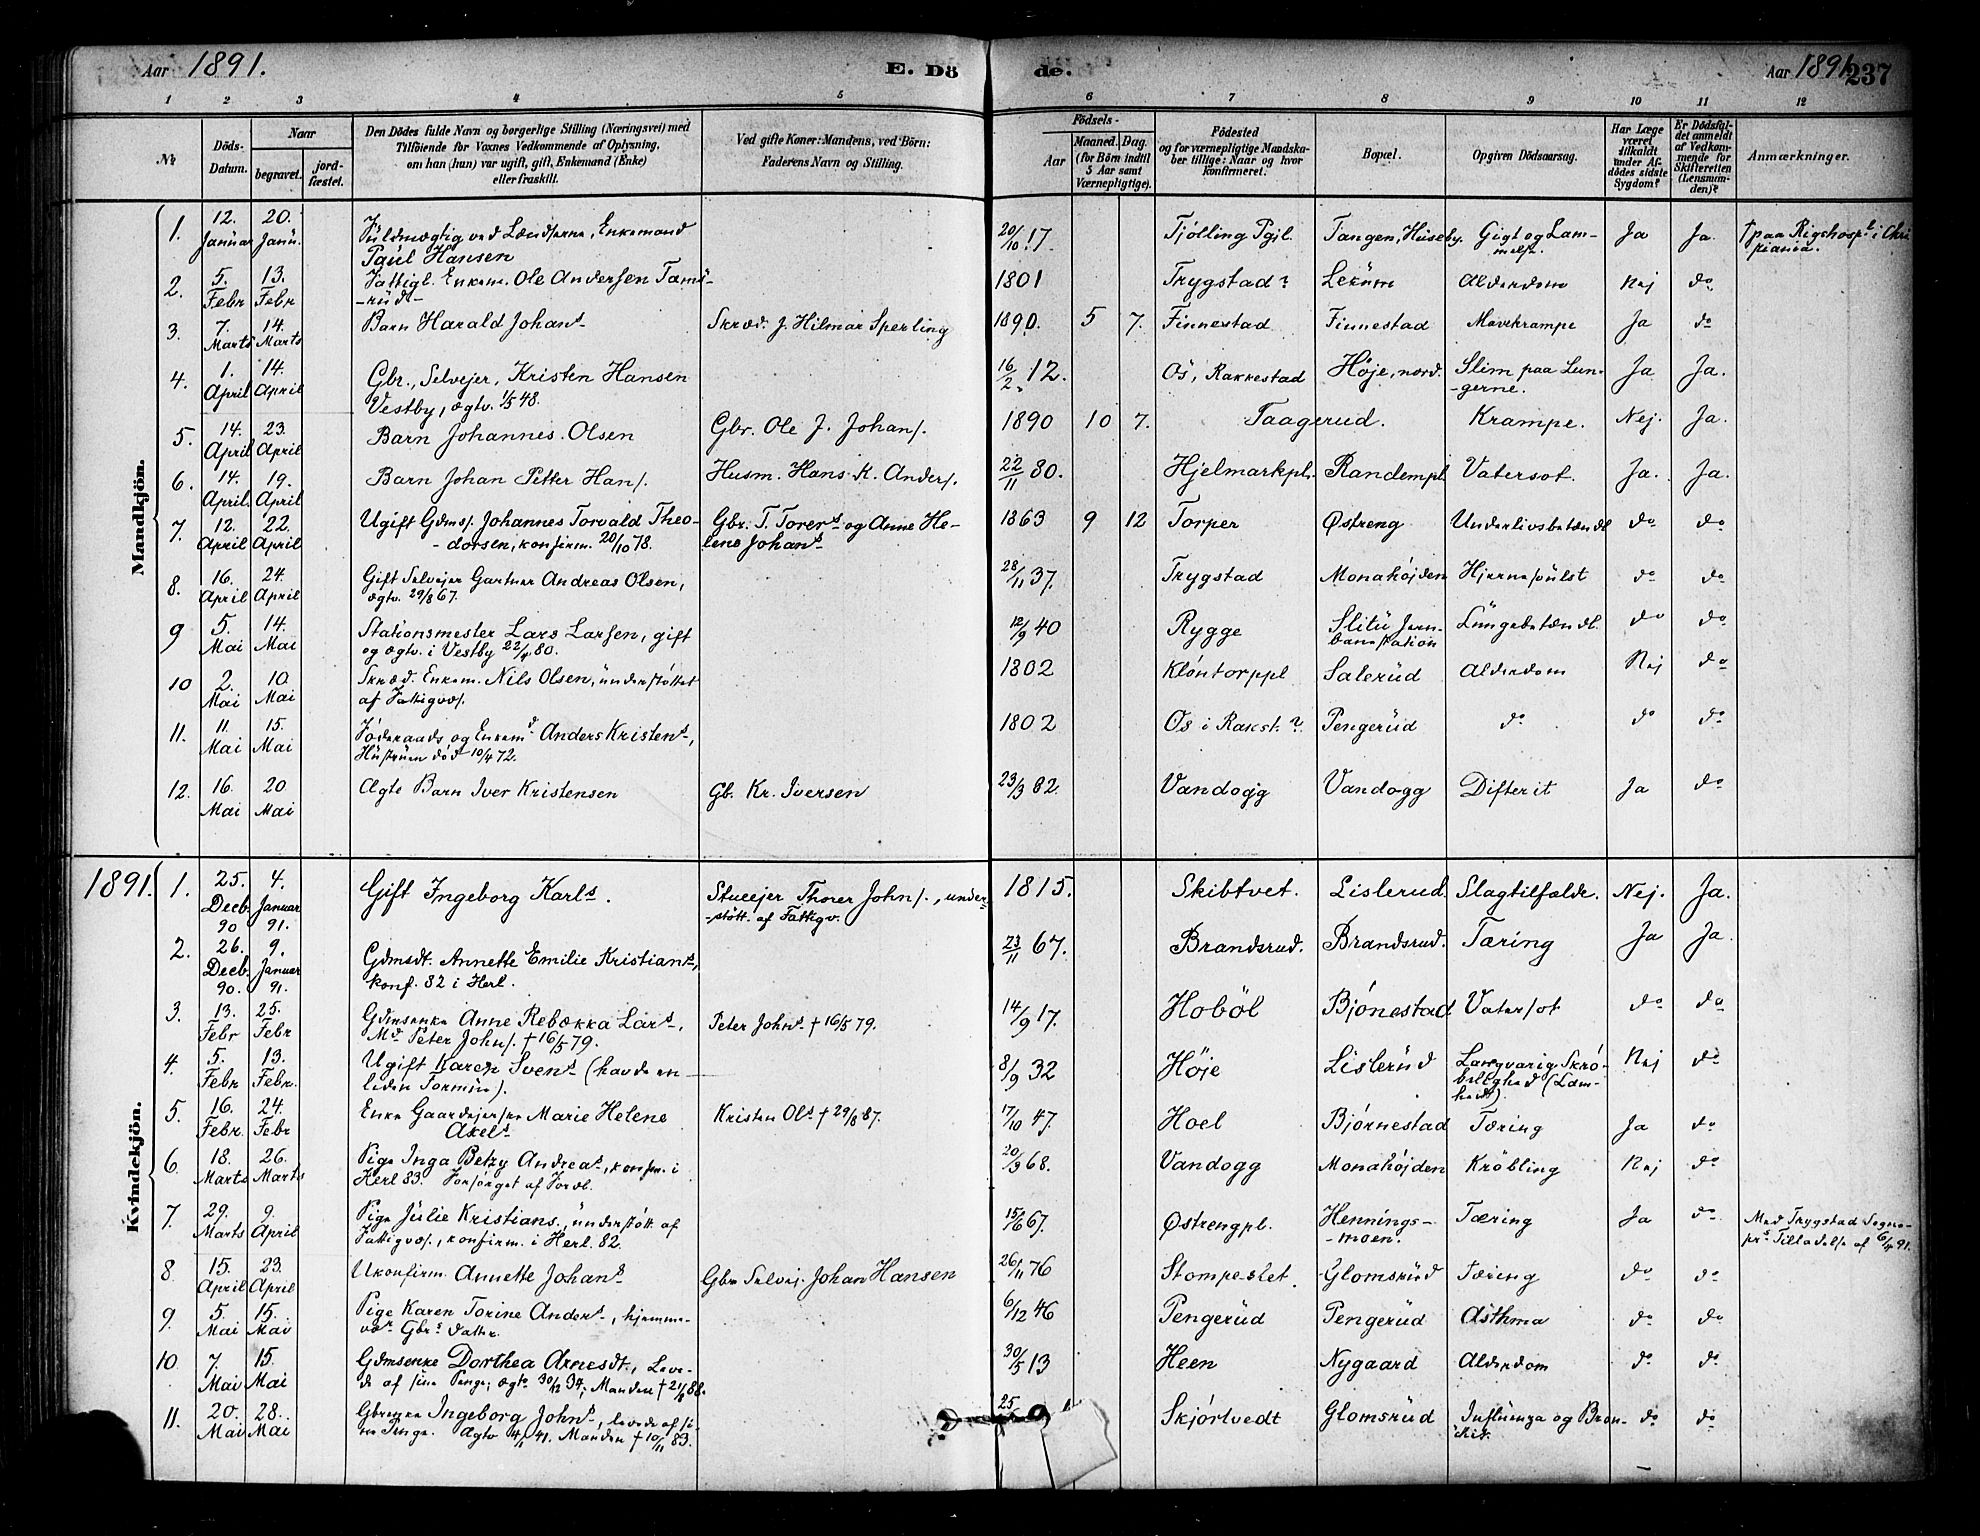 Aar 1891.
E. Dö
de.
Aar 1891
237
1 2 3 4 5 6 7 8 9 10 11 12
No
Döds-Datum.
Naar
begravet.
jordfæstet.
Den Dödes fulde Navn og borgerlige Stilling (Næringsvei) med
Tilföiende for Voxnes Vedkommende af Oplysning,
om han (hun) var ugift, gift, Enkemand (Enke)
eller fraskilt.
Ved gifte Koner: Mandens, ved Börn:
Faderens Navn og Stilling.
Födsels-
Aar
Maaned.
Dag.
(for Börn indtil
5 Aar samt
Værnepligtige).
Födested
og for værnepligtige Mandska-
ber tillige: Naar og hvor
konfirmeret.
Bopæl.
Opgiven Dödsaarsag.
Har Læge
været
tilkaldt
under Af-
dödes sidste
Sygdom?
Er Dödsfal-
det anmeldt
af Vedkom-
mende for
Skifteretten
(Lensman-
den)?
Anmærkninger.
Mandkjön.
1. 12. Januar 20. Janu. Fuldmægtig ved Lændserne, Enkemand
Paul Hansen 20/10 17. Tjölling Pgjl. Tangen, Huseby. Gigt og Lam-
melse. Ja Ja. † paa Rigshospt. i Chri
stiania.
2. 5. Febr 13. Febr Fattigl. Enkem. Ole Andersen Tams-
-rud- 1801 Trygstad? Lerüm Alderdom Nej do
3. 7. Marts 14. Marts Barn Harald Johans Skræd. J. Hilmar Sperling 1890. 5 7. Finnestad Finnestad Mavekrampe Ja do
4. 1. April 14. April Gbr., Selvejer, Kristen Hansen
Vestby, ægtv. 1/5 48. 16/2 12. Os, Rakkestad Höje, nord. Slim paa Lun-
gerne. Ja Ja.
5. 14. April 23. April Barn Johannes Olsen Gbr. Ole J. Johans. 1890 10 7. Taagerud. Krampe. Nej. Ja.
6. 14. April 19. April Barn Johan Petter Hans. Husm. Hans K. Anders. 22/11 80. Hjelmarkpl. Randempl. Vatersot. Ja. Ja.
7. 12. April 22. April Ugift Gdms. Johannes Torvald Theo-
- dorsen, konfirm. 20/10 78. Gbr. T. Torers og Anne He-
lene Johans 1863 9 12 Torper Østreng Underlivsbetændl. do do
8. 16. April 24. April Gift Selvejer Gartner Andreas Olsen,
ægtv. 29/8 67. 28/11 37. Trygstad Monahöjden Hjernesvulst do do
9 5. Mai 14. Mai Stationsmester Lars Larsen, gift
og ægtv. i Vestby 22/4 80. 12/9 40 Rygge Slitu Jern-
banestation Lungebetændl. do do
10 2. Mai 10. Mai Skræd. Enkem. Nils Olsen, understöttet
af Fattigvæs. 1802 Klöntorppl Salerud Alderdom Nej do
11. 11. Mai 15. Mai Föderaads og Enkemd Anders Kristens,
Hustruen död 10/4 72. 1802 Os i Rakst.? Pengerud do do do
12. 16. Mai 20 Mai Ægte Barn Iver Kristensen Gb. Kr. Iversen 23/3 82. Vandogg Vandogg Difterit Ja do
Kvindekjön.
1891. 1. 25. Decb. 90 4. Januar 91. Gift Ingeborg Karls. Stueejer Thorer Johns., under-
-stött. af Fattigv. 1815. Skibtvet. Lislerud. Slagtilfælde. Nej. Ja.
2. 26. Decb. 90. 9. Januar 91. Gdmsdt. Annette Emilie Kristians,
konf. 82 i Herl. 23/11 67. Brandsrud. Brandsrud. Tæring Ja Ja.
3. 13. Febr 25. Febr Gdmsenke Anne Rebekka Lars,
Md Peter Johns. † 16/5 79. Peter Johns † 16/5 79. 14/9 17. Hoböl Bjönestad Vatersot do do
4. 5. Febr 13. Febr. Ugift Karen Svens (havde en
liden Formue). 8/9 32 Höje Lislerud Langvarig Skrö-
belighed (Lam-
hedt). Nej do
5. 16. Febr. 24. Febr Enke Gaardejerske Marie Helene
Akels Kristen Ols † 29/8 87. 17/10 47. Hoel Bjørnestad Tæring Ja do
6. 18. Marts 26. Marts Pige Inga Betzy Andreas, konfirm. i
Herl 83. Forsörget af Foræl. 20/3 68. Vandogg Monahöjden Kröbling Nej do
7. 29. Marts 9. April Pige Julie Kristians., understött af
Fattigvæs., konfirm. i Herl. 82. 15/6 67. Østrengpl. Hennings-
-moen. Tæring Ja do Med Trygstad Sogne-
prs Tilladelse af 6/4 91.
8 15. April 23. April Ukonfirm. Annette Johans Gbr Selvej. Johan Hansen 26/11 76 Stompeslet. Glomsrud Tæring do do
9. 5. Mai 15. Mai Pige Karen Torine Anders, hjemme-
vær. Gbrs datter. 6/12 46 Pengerud Pengerud Asthma do do
10. 7. Mai 15. Mai Gdmsenke Dorthea Arnesdt., Leve-
de af sine Penge; ægtv. 30/12 34; Manden † 21/8 88. 30/5 13 Heen Nygaard Alderdom do do
11. 20. Mai 28. Mai Gbrenke Ingeborg Johns, levede af si-
ne Penge. Ægtv 4/1 41. Manden † 10/11 83. 25 Skjörtvedt Glomsrud Influenza og Bron-
chit. do do